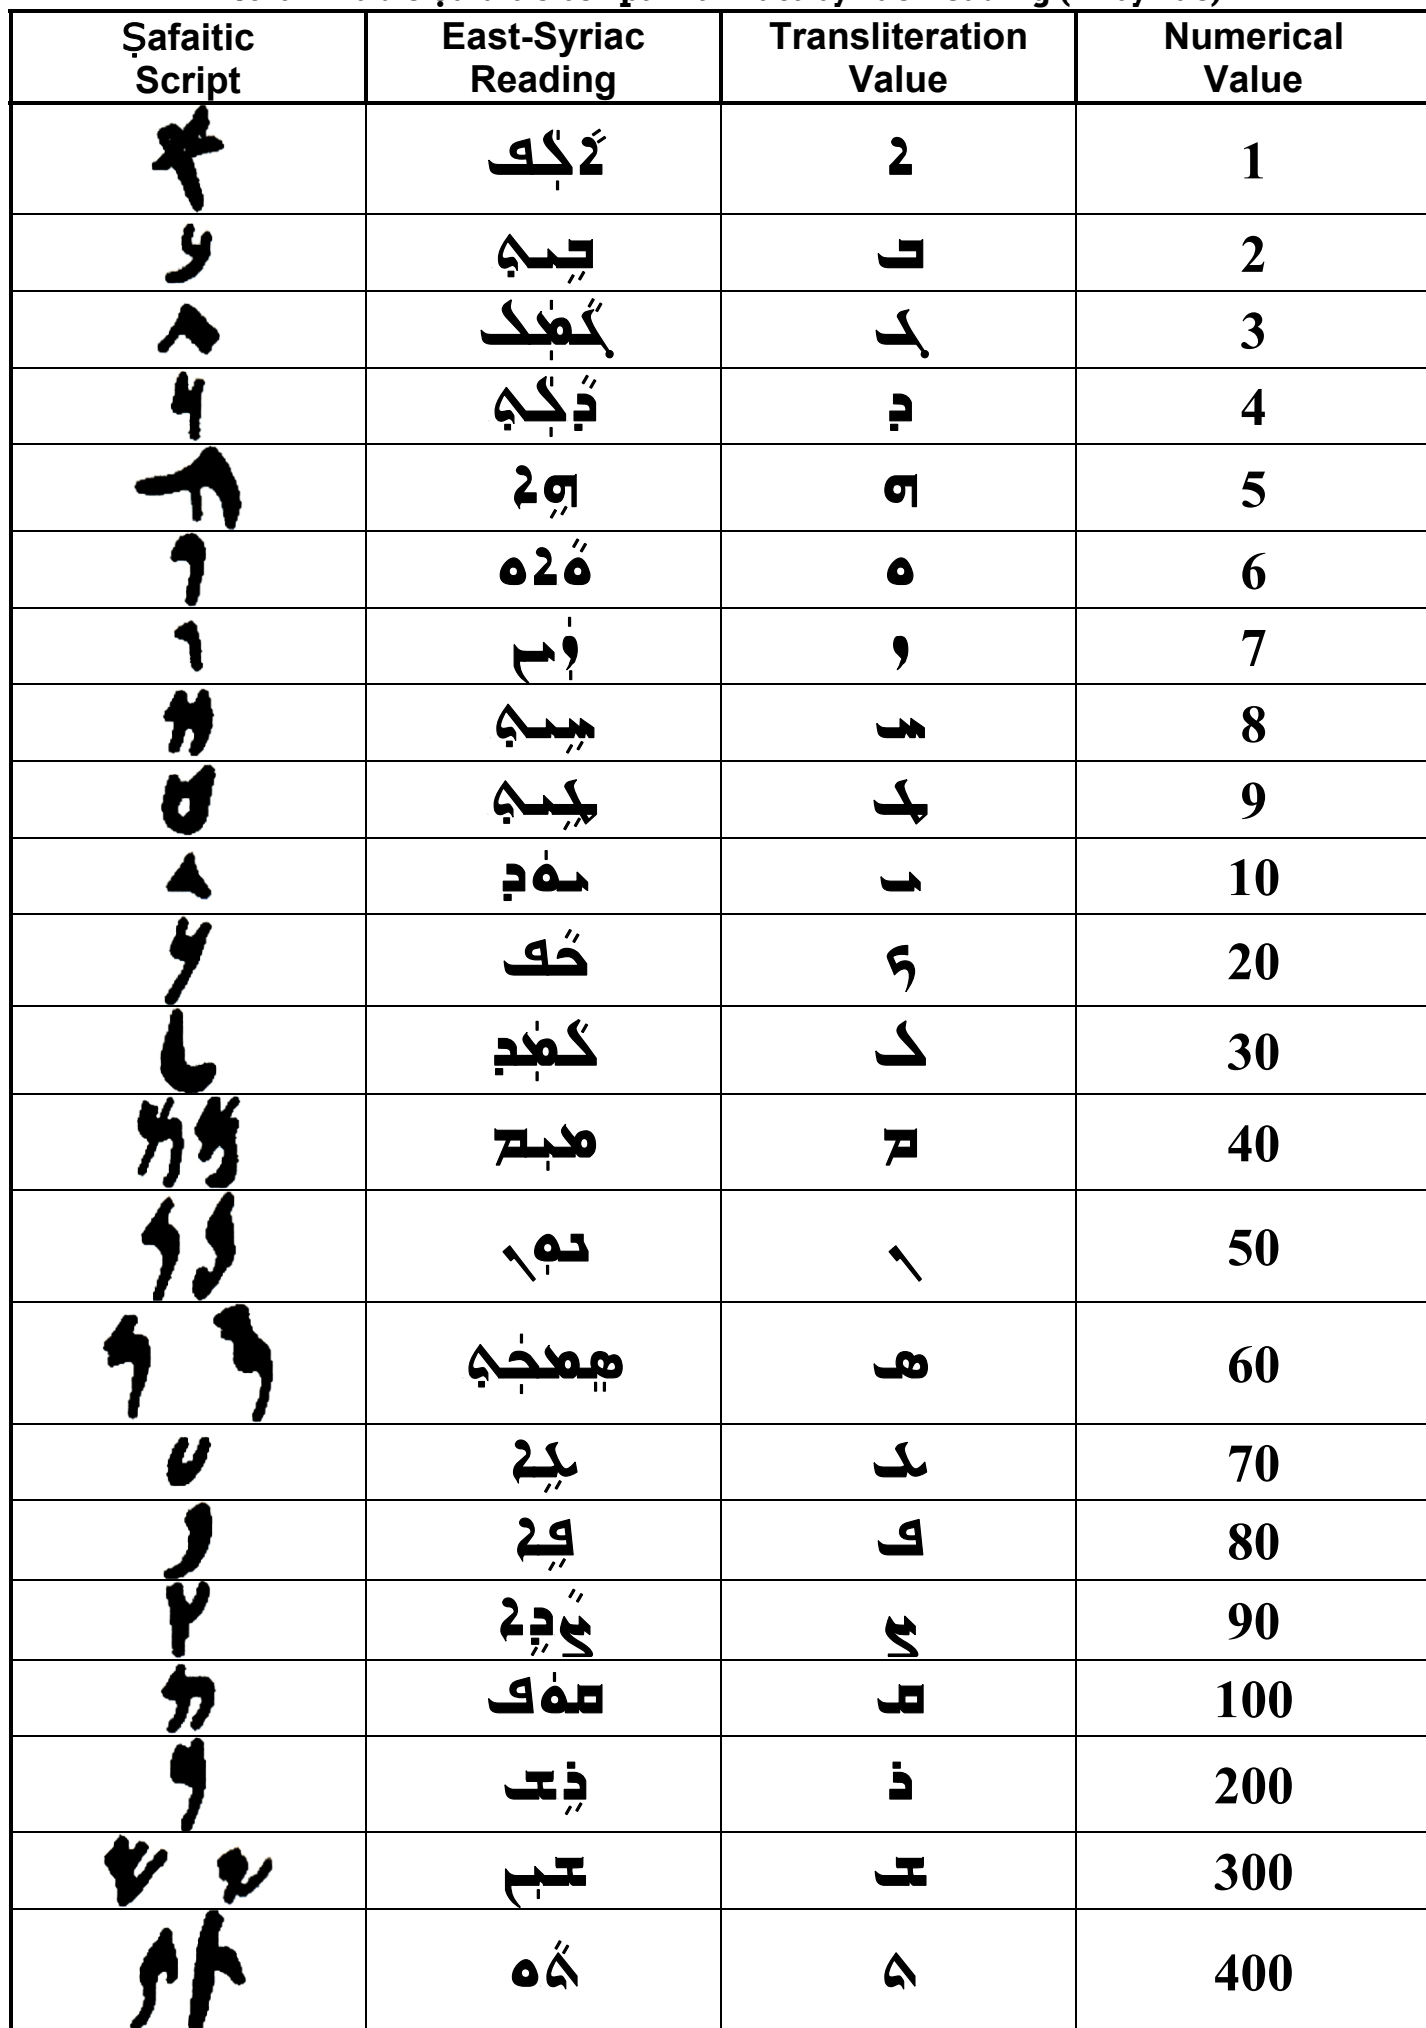 Ṣafaitic Script East-Syriac Reading Transliteration Value Numerical Value
ܐܵܠܲܦ ܐ 1
ܒܹܝܬ݂ ܒ 2
ܓܵܡܲܠ ܓ 3
ܕܵܠܲܬ݂ ܕ 4
ܗܹܐ ܗ 5
ܘܵܐܘ ܘ 6
ܙܲܝܢ ܙ 7
ܚܹܝܬ݂ ܚ 8
ܛܹܝܬ݂ ܛ 9
ܝܘܿܕ ܝ 10
ܟܵܦ ܟ 20
ܠܵܡܲܕ ܠ 30
ܡܝܼܡ ܡ 40
ܢܘܼܢ ܢ 50
ܣܸܡܟܲܬ݂ ܣ 60
ܥܹܐ ܥ 70
ܦܹܐ ܦ 80
ܨܵܕܹܐ ܨ 90
ܩܘܿܦ ܩ 100
ܪܹܫ ܪ 200
ܫܝܼܢ ܫ 300
ܬܵܘ ܬ 400